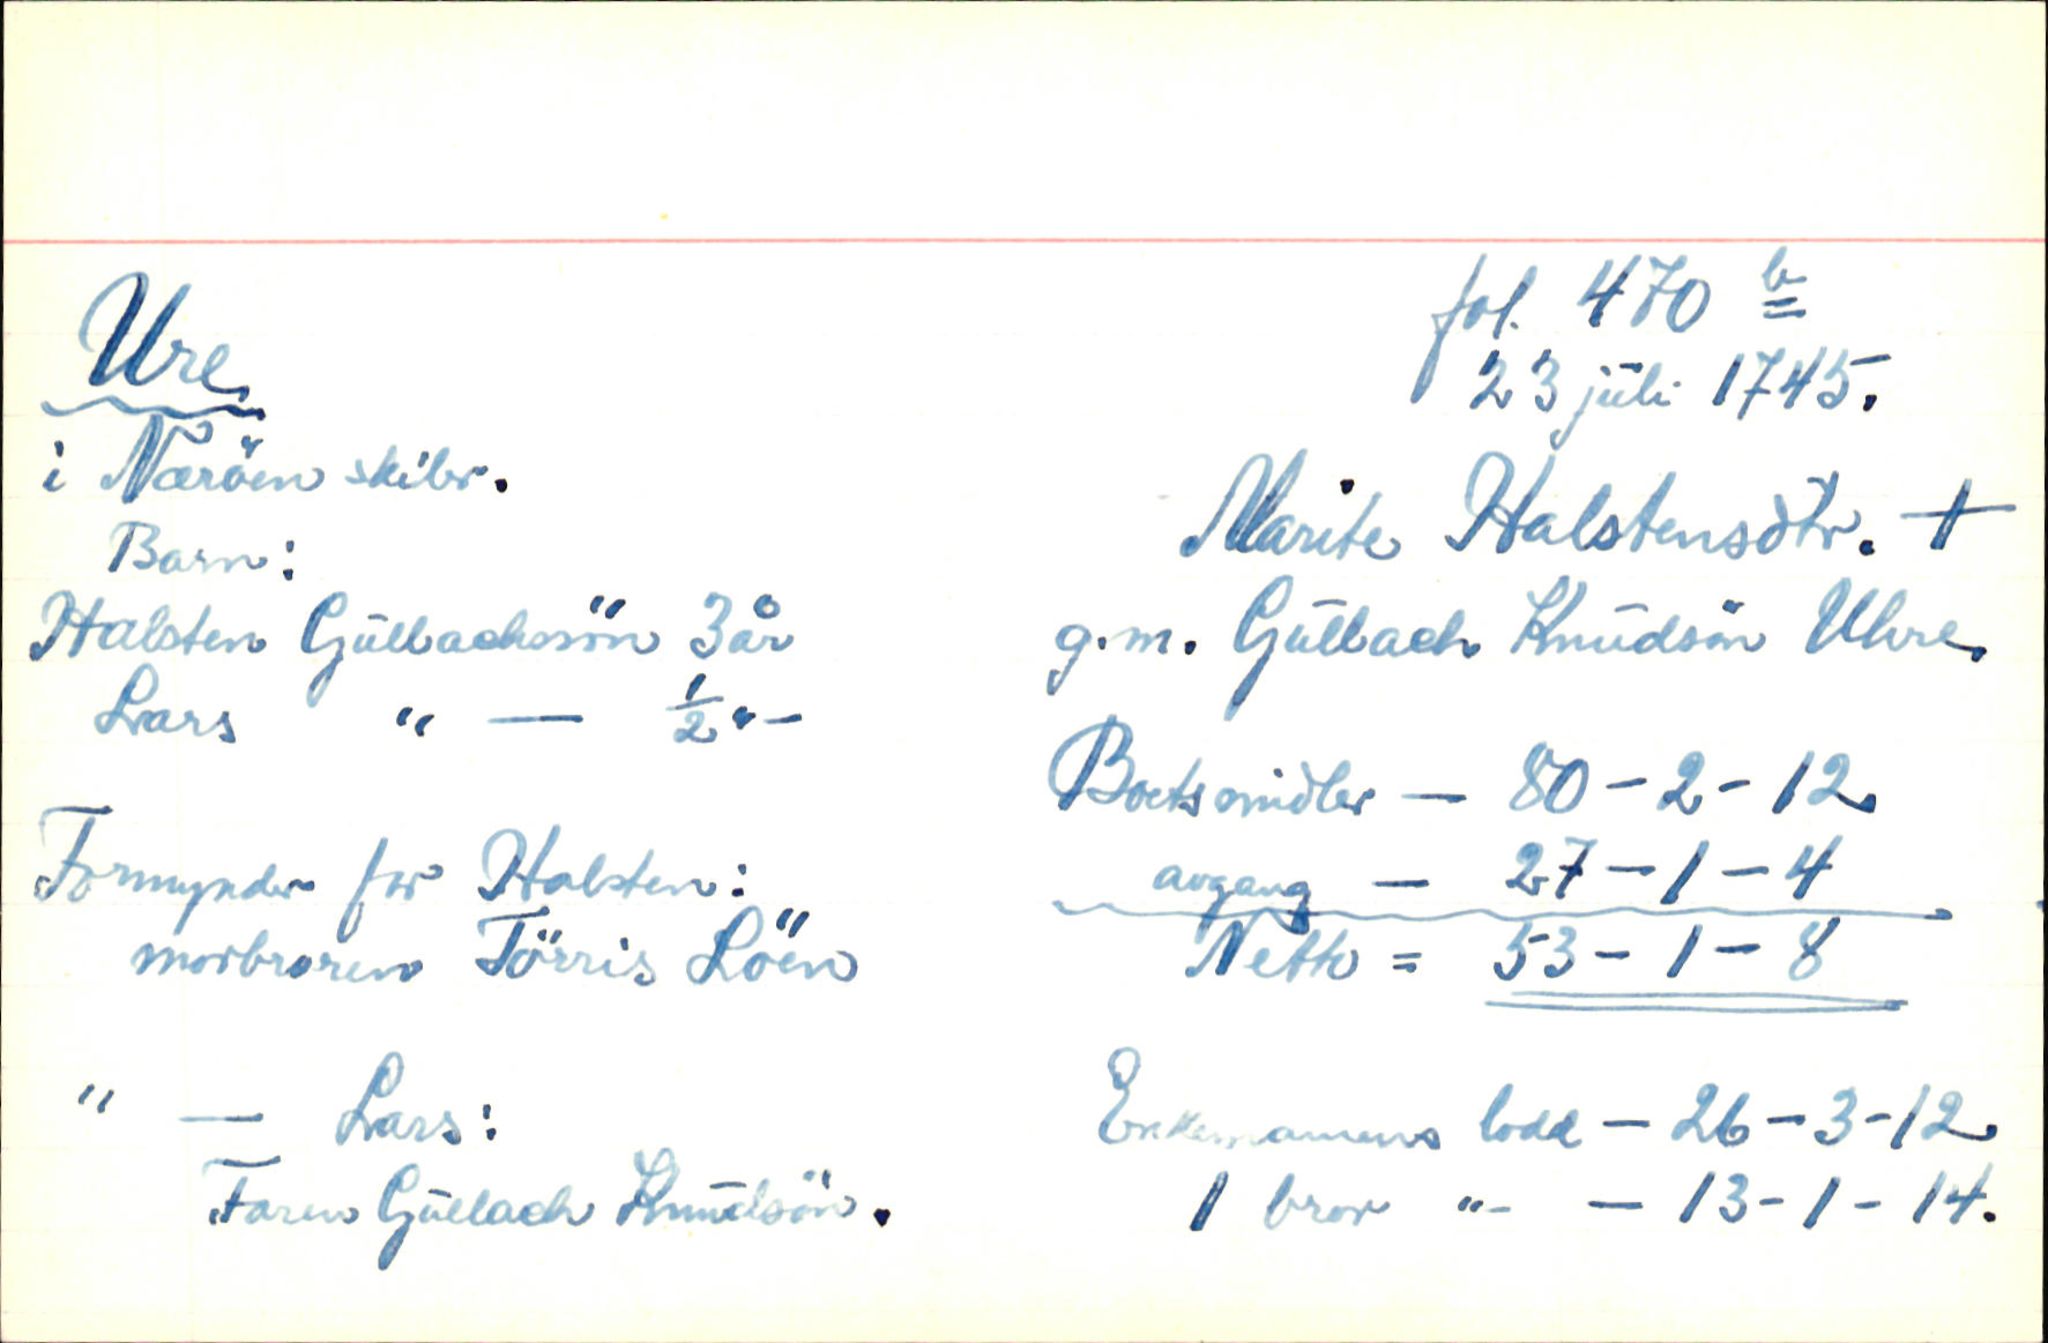 fol. 470 b
Ure
23 juli 1745.
i Næröen skibr.
Marite Halstensdtr. +
Barn:
Halsten Gullachssön 3 år
g.m. Gullach Knudsön Uhre.
Lars " — 1/2 "-
Boets midler — 80 - 2 - 12
Formynder for Halsten:
avgang — 27 - 1 - 4
morbroren Törris Löen
Netto = 53 - 1 - 8
" — Lars:
Enkemannens lodd - 26 - 3 - 12
Faren Gullach Knudsön.
1 bror "- — 13 - 1 - 14.